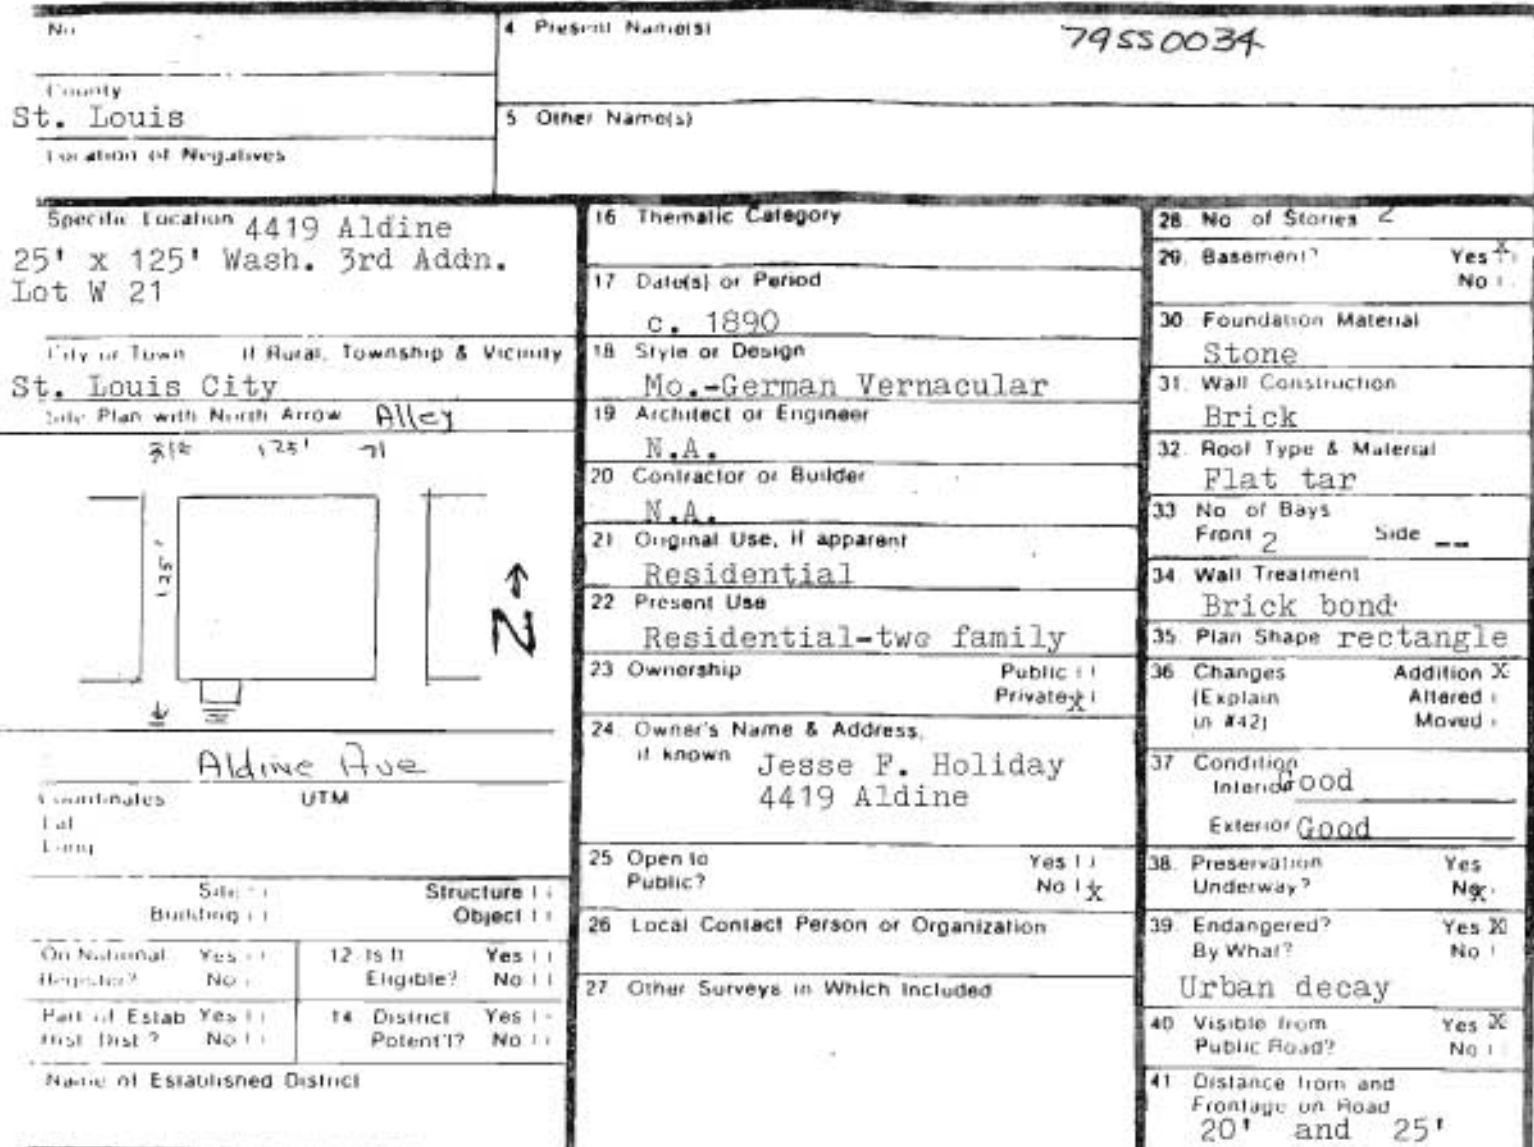 No
4 Present Name(s)
79550034
County
St. Louis
5 Other Name(s)
Location of Negatives
Specific Location 4419 Aldine
25' x 125' Wash. 3rd Addn.
Lot W 21
City or Town If Rural, Township & Vicinity
St. Louis City
Site Plan with North Arrow Alley
125'
125'
N
Aldine Ave
Coordinates UTM
Lat
Long
Site Structure
Building Object
On National Register? Yes No
12 Is It Eligible? Yes No
Part of Estab Hist Dist? Yes No
14 District Potent'l? Yes No
Name of Established District
16 Thematic Category
17 Date(s) or Period
c. 1890
18 Style or Design
Mo.-German Vernacular
19 Architect or Engineer
N.A.
20 Contractor or Builder
N.A.
21 Original Use, if apparent
Residential
22 Present Use
Residential-two family
23 Ownership Public
Private x
24 Owner's Name & Address,
if known Jesse F. Holiday
4419 Aldine
25 Open to Yes
Public? No x
26 Local Contact Person or Organization
27 Other Surveys in Which Included
28 No. of Stories 2
29. Basement? Yes x
No
30 Foundation Material
Stone
31. Wall Construction
Brick
32. Roof Type & Material
Flat tar
33 No. of Bays
Front 2 Side --
34 Wall Treatment
Brick bond
35. Plan Shape rectangle
36 Changes Addition X
(Explain Altered
in #42) Moved
37 Condition
Interior Good
Exterior Good
38. Preservation Yes
Underway? No x
39. Endangered? Yes X
By What? No
Urban decay
40 Visible from Yes X
Public Road? No
41 Distance from and
Frontage on Road
20' and 25'